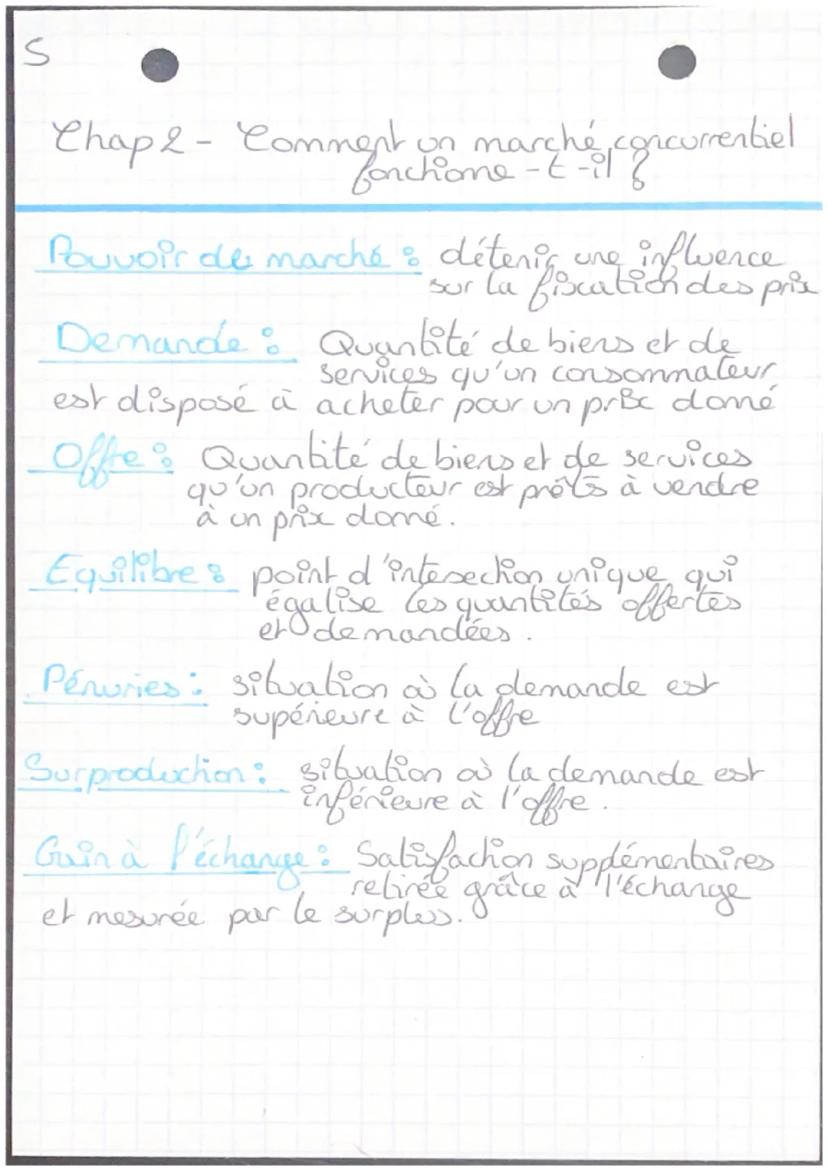 S
Chap 2 - Comment un marché concurrentiel
fonctionne -t -il ?
Pouvoir de marché : détenir une influence
sur la fixcation des prix
Demande : Quantité de biens et de
services qu'un consommateur
est disposé à acheter pour un prix donné
Offre : Quantité de biens et de services
qu'un producteur est prêts à vendre
à un prix donné.
Equilibre : point d'intesection unique qui
égalise les quantités offertes
et demandées.
Pénuries : situation où la demande est
supérieure à l'offre
Surproduction : situation où la demande est
inférieure à l'offre.
Gain à l'échange : Satisfaction supplémentaires
retirée grâce à l'échange
et mesurée par le surplus.